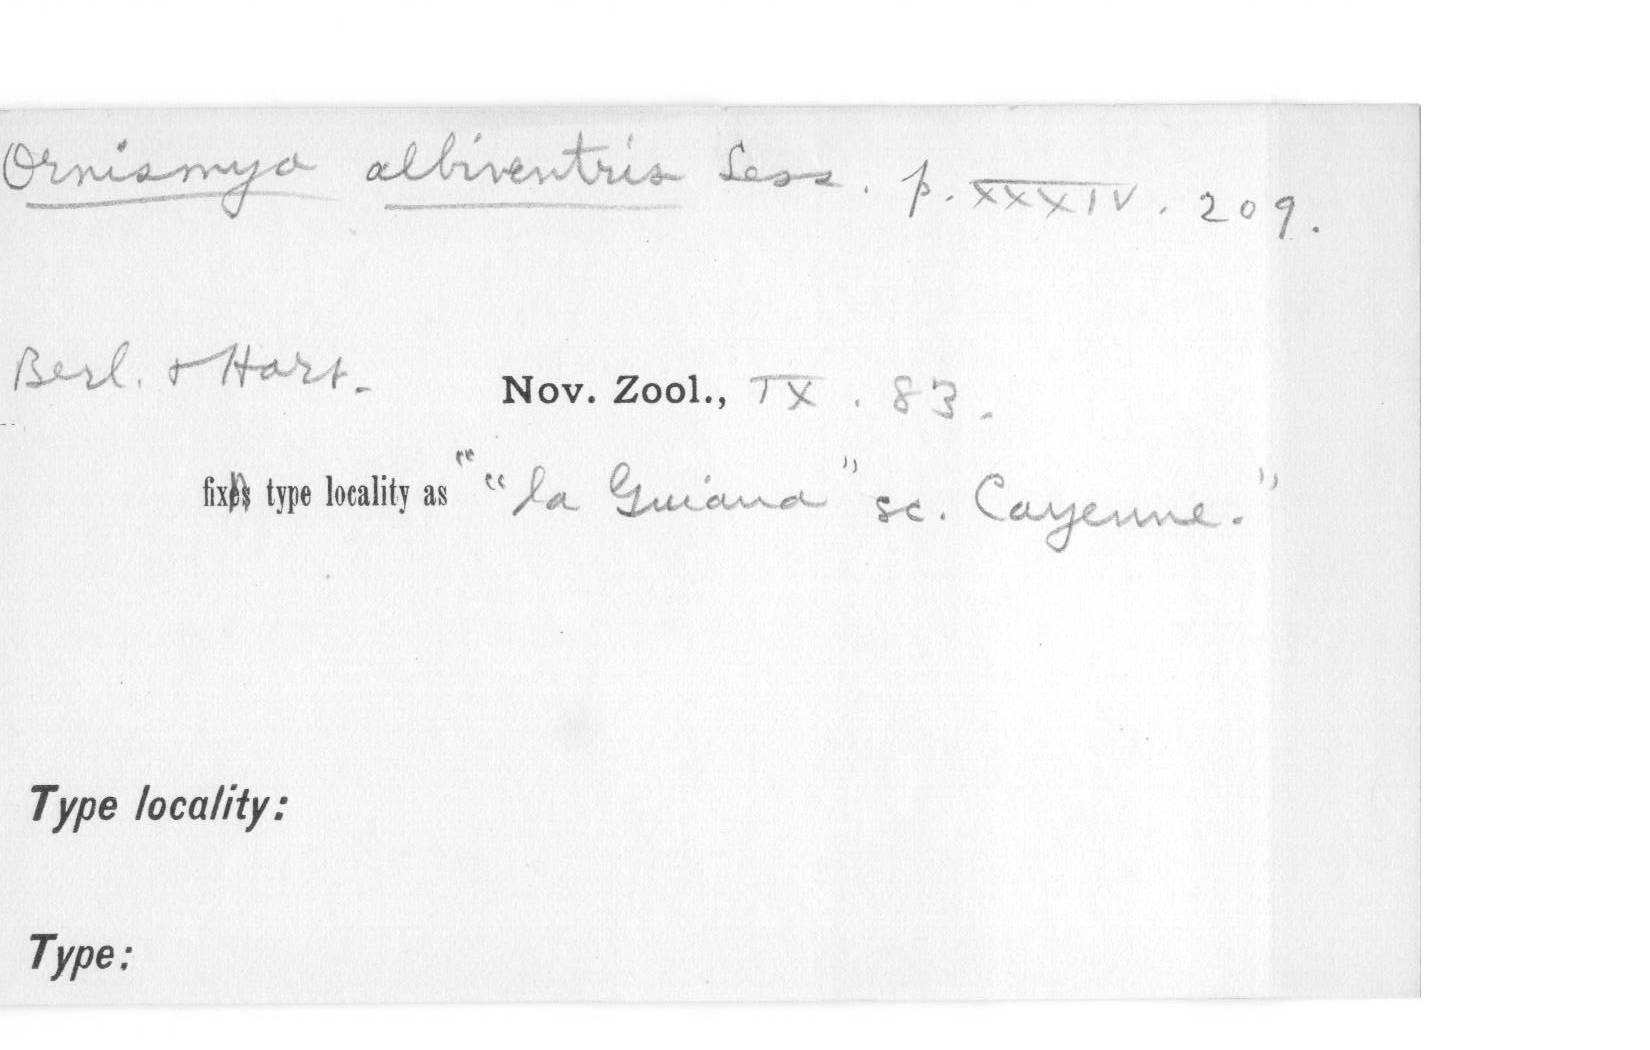 Ornismya albiventris Less. p. XXXIV. 209.
Berl. & Hart. Nov. Zool., IX. 83.
fix type locality as "“la Guiana” sc. Cayenne."
Type locality:
Type: